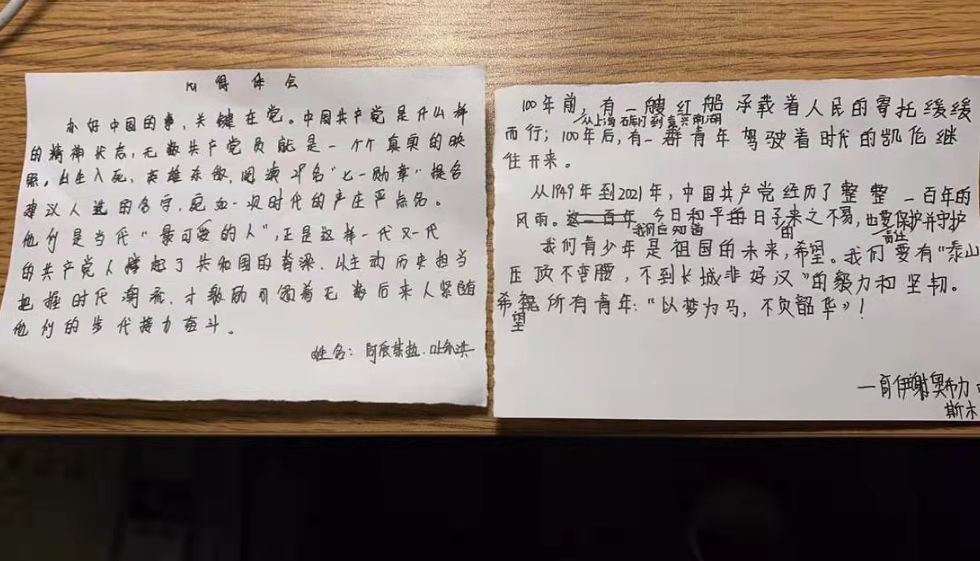 心得体会
办好中国的事，关键在党。中国共产党是什么样
的精神状态，无数共产党员就是一个个真实的映
照。出生入死，英雄本色，阅读 名"七一勋章"提名
建议人选的名字，宛如一次时代的庄严点名。
他们是当代"最可爱的人"，正是这样一代又一代
的共产党人撑起了共和国的脊梁，以主动历史担当
把握时代潮流，才激励引领着无数后来人紧随
他们的步伐接力奋斗。
姓名：阿辰 拉·
100年前，有一艘红船承载着人民的寄托缓缓
从上海石库门到嘉兴南湖
而行；100年后，有一群青年驾驶着时代的凯伦继
往开来。
从1949年到2021年，中国共产党经历了整整一百年的
风雨。这一百年今日和平每日子来之不易，也要保护并守护
我们应知道 的
我们青少年是祖国的未来，希望。我们要有"泰山
压顶不弯腰，不到长城非好汉"的毅力和坚韧。
希望所有青年："以梦为马，不负韶华"！
望
一 伊谢 奥布力
斯木